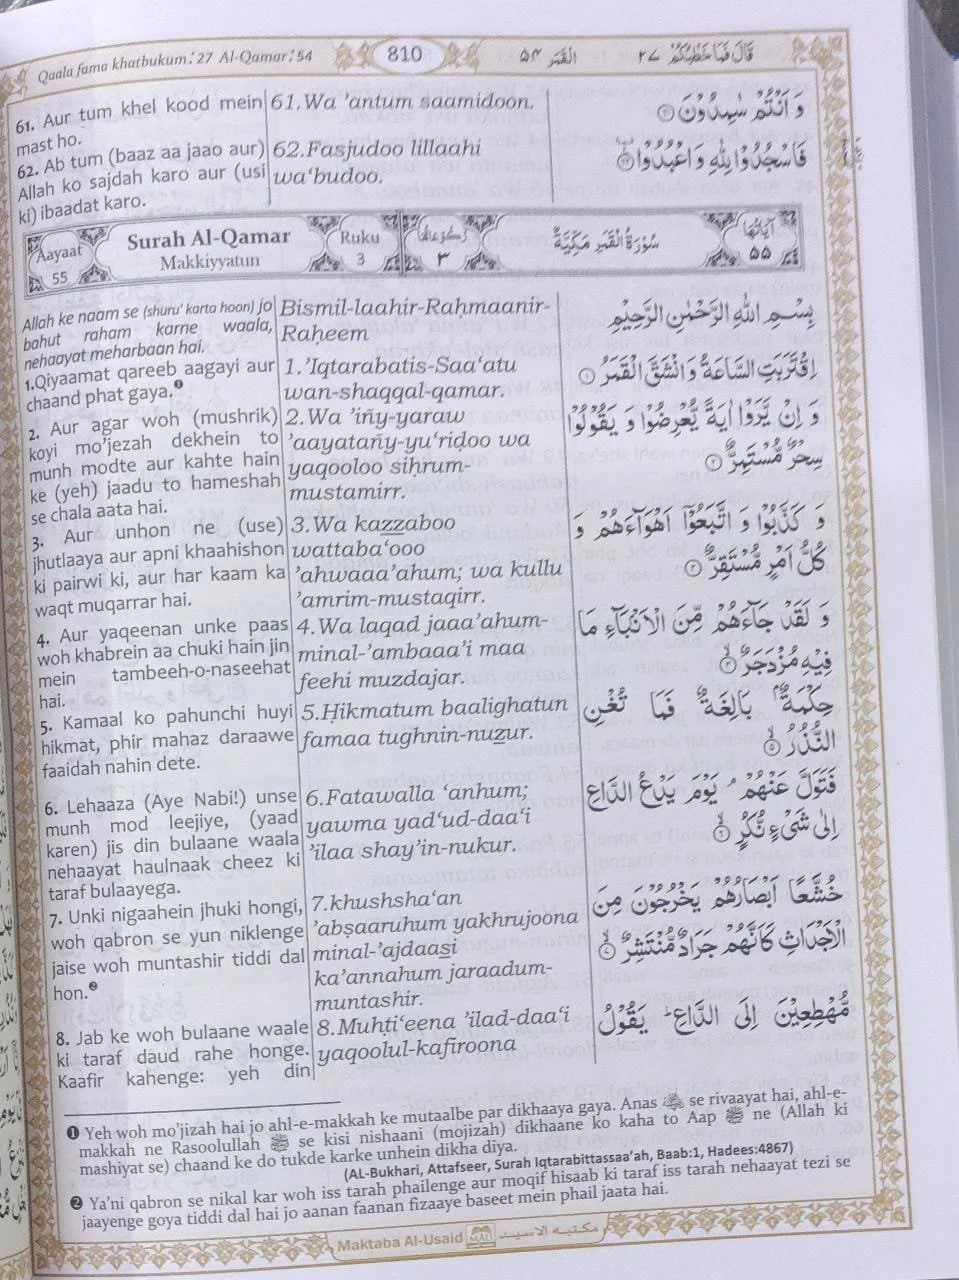 Quala fama khatbukum: 27 Al-Qamar: 54
810
القمر ۵۴
قال فما خطبكم ۲۷
61. Aur tum khel kood mein
mast ho.
62. Ab tum (baaz aa jaao aur)
Allah ko sajdah karo aur (usi
ki) ibaadat karo.
61.Wa ’antum saamidoon.
62.Fasjudoo lillaahi
wa‘budoo.
وَ اَنْتُمْ سٰمِدُوْنَ ۶۱
فَاسْجُدُوْا لِلّٰهِ وَ اعْبُدُوْا ۶۲
Aayaat
55
Surah Al-Qamar
Makkiyyatun
Ruku
3
رکوعاتها
۳
سُوْرَةُ الْقَمَرِ مَكِّيَّةٌ
اٰیاتها
۵۵
Allah ke naam se (shuru' karta hoon) jo
bahut raham karne waala,
nehaayat meharbaan hai.
1.Qiyaamat qareeb aagayi aur
chaand phat gaya.❶
2. Aur agar woh (mushrik)
koyi mo’jezah dekhein to
munh modte aur kahte hain
ke (yeh) jaadu to hameshah
se chala aata hai.
3. Aur unhon ne (use)
jhutlaaya aur apni khaahishon
ki pairwi ki, aur har kaam ka
waqt muqarrar hai.
4. Aur yaqeenan unke paas
woh khabrein aa chuki hain jin
mein tambeeh-o-naseehat
hai.
5. Kamaal ko pahunchi huyi
hikmat, phir mahaz daraawe
faaidah nahin dete.
6. Lehaaza (Aye Nabi!) unse
munh mod leejiye, (yaad
karen) jis din bulaane waala
nehaayat haulnaak cheez ki
taraf bulaayega.
7. Unki nigaahein jhuki hongi,
woh qabron se yun niklenge
jaise woh muntashir tiddi dal
hon.❷
8. Jab ke woh bulaane waale
ki taraf daud rahe honge.
Kaafir kahenge: yeh din
Bismil-laahir-Raḥmaanir-
Raḥeem
1.’Iqtarabatis-Saa‘atu
wan-shaqqal-qamar.
2.Wa ’iñy-yaraw
’aayatañy-yu‘riḍoo wa
yaqooloo siḥrum-
mustamirr.
3.Wa kazzaboo
wattaba‘ooo
’ahwaaa’ahum; wa kullu
’amrim-mustaqirr.
4.Wa laqad jaaa’ahum-
minal-’ambaaa’i maa
feehi muzdajar.
5.Ḥikmatum baalighatun
famaa tughnin-nuzur.
6.Fatawalla ‘anhum;
yawma yad‘ud-daa‘i
’ilaa shay’in-nukur.
7.khushsha‘an
’abṣaaruhum yakhrujoona
minal-’ajdaasi
ka’annahum jaraadum-
muntashir.
8.Muhti‘eena ’ilad-daa‘i
yaqoolul-kafiroona
بِسْمِ اللّٰهِ الرَّحْمٰنِ الرَّحِیْمِ
اِقْتَرَبَتِ السَّاعَةُ وَ انْشَقَّ الْقَمَرُ ۱
وَ اِنْ یَّرَوْا اٰیَةً یُّعْرِضُوْا وَ یَقُوْلُوْا
سِحْرٌ مُّسْتَمِرٌّ ۲
وَ كَذَّبُوْا وَ اتَّبَعُوْۤا اَهْوَآءَهُمْ وَ
كُلُّ اَمْرٍ مُّسْتَقِرٌّ ۳
وَ لَقَدْ جَآءَهُمْ مِّنَ الْاَنْۢبَآءِ مَا
فِیْهِ مُزْدَجَرٌ ۴
حِكْمَةٌۢ بَالِغَةٌ فَمَا تُغْنِ
النُّذُرُ ۵
فَتَوَلَّ عَنْهُمْ ۘ یَوْمَ یَدْعُ الدَّاعِ
اِلٰی شَیْءٍ نُّكُرٍ ۶
خُشَّعًا اَبْصَارُهُمْ یَخْرُجُوْنَ مِنَ
الْاَجْدَاثِ كَاَنَّهُمْ جَرَادٌ مُّنْتَشِرٌ ۷
مُّهْطِعِیْنَ اِلَی الدَّاعِ ؕ یَقُوْلُ
❶ Yeh woh mo’jizah hai jo ahl-e-makkah ke mutaalbe par dikhaaya gaya. Anas ؓ se rivaayat hai, ahl-e-
makkah ne Rasoolullah ﷺ se kisi nishaani (mojizah) dikhaane ko kaha to Aap ﷺ ne (Allah ki
mashiyat se) chaand ke do tukde karke unhein dikha diya.
(AL-Bukhari, Attafseer, Surah Iqtarabittassaa’ah, Baab:1, Hadees:4867)
❷ Ya’ni qabron se nikal kar woh iss tarah phailenge aur moqif hisaab ki taraf iss tarah nehaayat tezi se
jaayenge goya tiddi dal hai jo aanan faanan fizaaye baseet mein phail jaata hai.
Maktaba Al-Usaid
MAU
مكتبه الاسيد